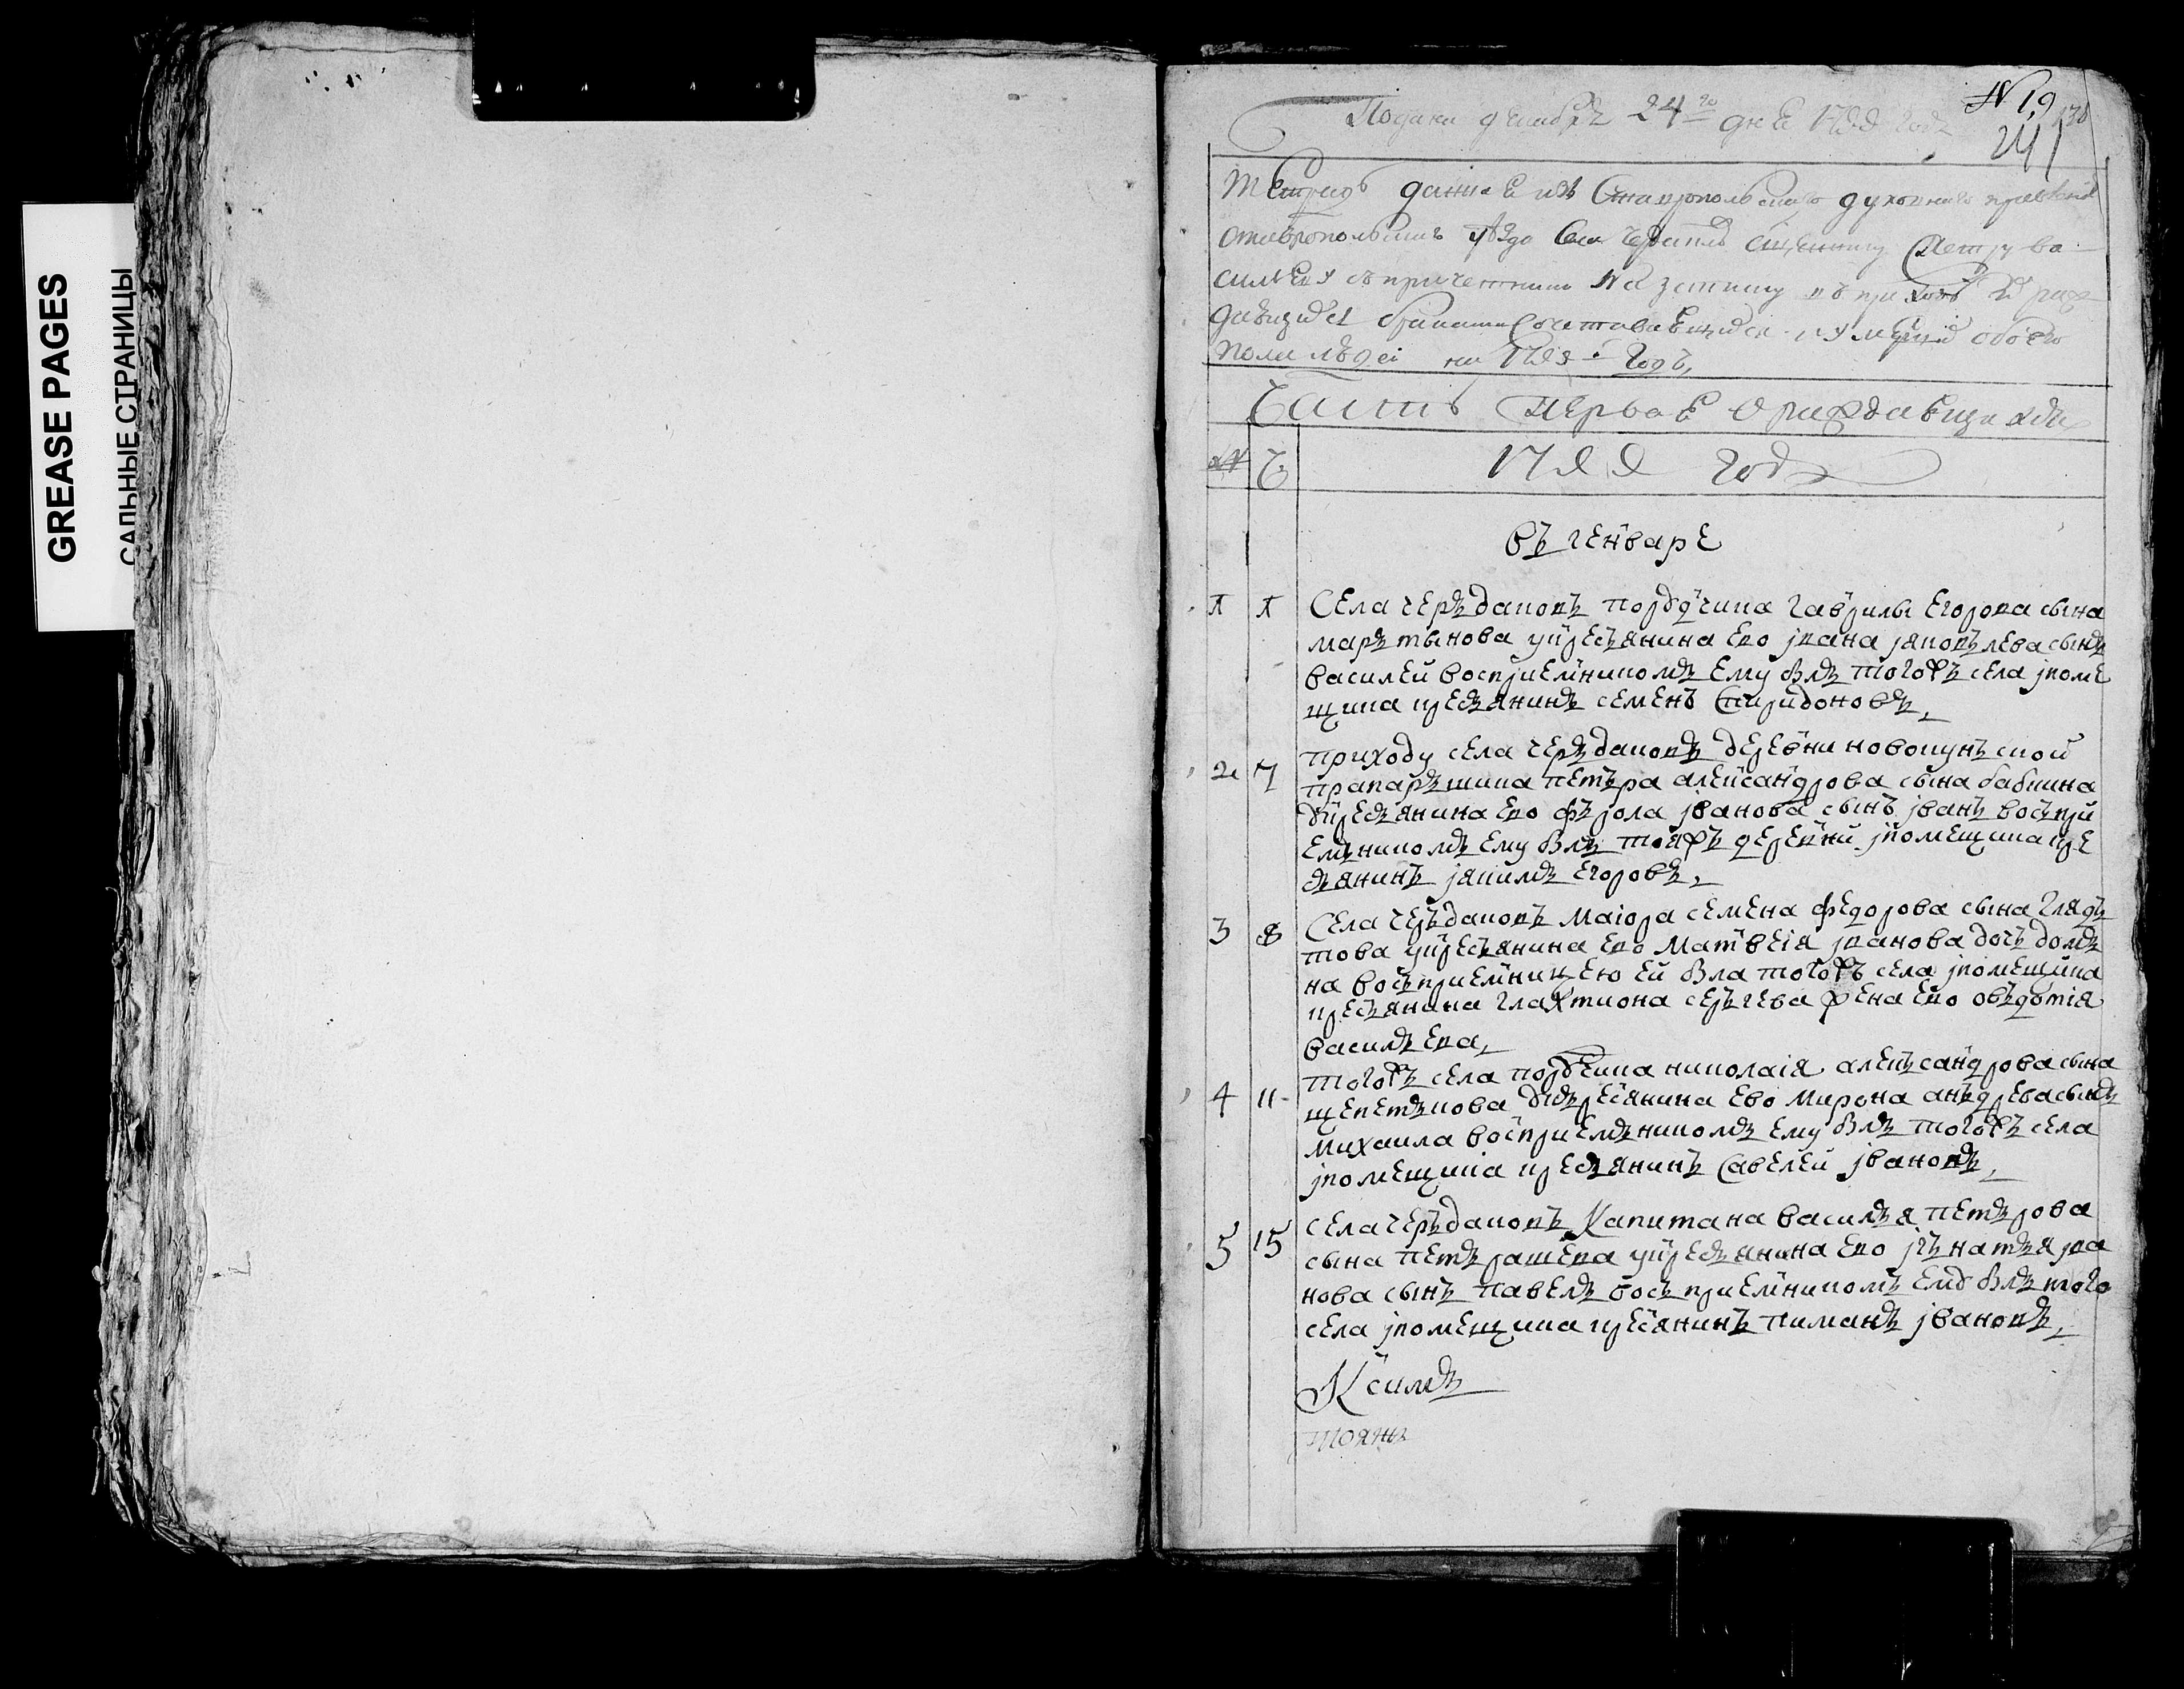 GREASE PAGES
САЛЬНЫЕ СТРАНИЦЫ
№ 19
Подана декабря 24го дня 1788 года
241
Тетрадь данная изъ Ставропольскаго духовнаго правления
Ставропольскаго уезда села священнику Петру Ва
сильеву съ причетники на записку въ приходе ихъ рож
давшихся браками сочетавшихся и умерших обоего
пола людей на годъ,
Часть первая о рождавшихся
№ Ч 1788 года
въ генваре
1 1 Села чердаковъ порутчика гаврилы егорова сына
мартынова укрестьянина ево ивана яковълева сынъ
василей восприемникомъ ему былъ тогожъ села іпоме
щика крестьянинъ семенъ Спиридоновъ,
2 7 приходу села чердаковъ деревни новокунъской
прапаръщика петъра александрова сына бабкина
укрестьянина ево фърола іванова сынъ іванъ восъпри
емъникомъ ему былъ тояжъ деревни іпомещика кре
стьянинъ якимъ егоровъ,
3 8 Села черъдаковъ маіора семена федорова сына глядъ
това укрестьянина ево матвеія іванова дочь домъ
на восъприемницею ей была тогожъ села іпомещика
крестьянина глахтиона серъгева жена ево овъдотія
васильева,
4 11 тогожъ села порутчика николаія алексъсандрова сына
щепетъкова укрестьянина ево мирона анъдрева сынъ
михаила восприемъникомъ ему былъ тогожъ села
іпомещика крестьянинъ савелей івановъ,
5 15 села черъдаковъ Капитана василья петърова
сына петърашева укрестьянина ево ігънатья іва
нова сынъ павелъ восъприемникомъ ему былъ того
села іпомещика крестьянинъ пиманъ івановъ,
Ксимъ